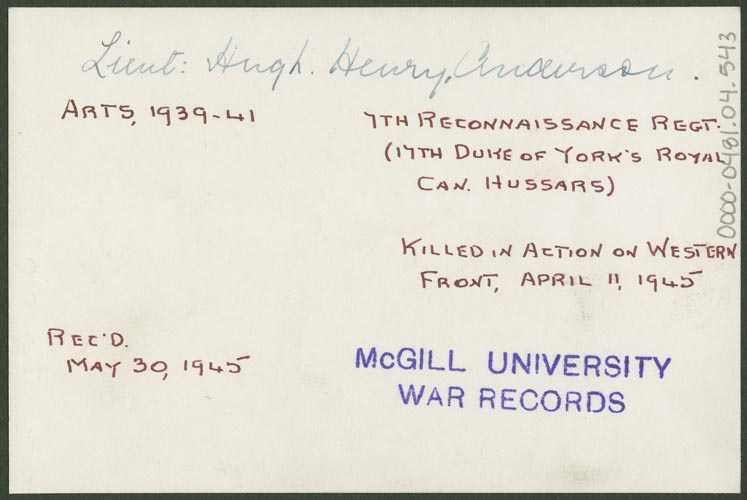 Lieut: Hugh. Henry, Anderson.
ARTS, 1939-41
7TH RECONNAISSANCE REGT.
(17TH DUKE OF YORK'S ROYAL
CAN. HUSSARS)
KILLED IN ACTION ON WESTERN
FRONT, APRIL 11, 1945
REC'D.
MAY 30, 1945
McGILL UNIVERSITY
WAR RECORDS
0000-0481.04.543